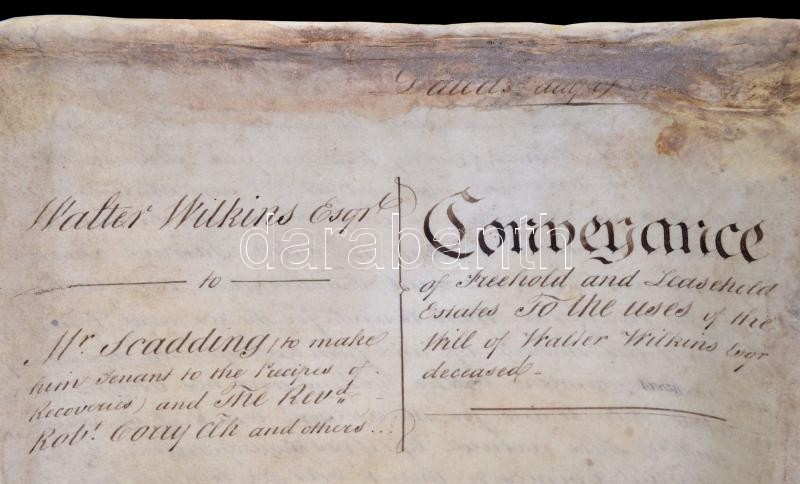 Dated
Walter Wilkins Esqre
to
Mr. Scadding (to make
him Tenant to the Precipes of
Recoveries) and The Revd.
Robt. Corry Clk and others...
Conveyance
of Freehold and Leasehold
Estates To the uses of the
Will of Walter Wilkins Esqr
deceased
darabanth